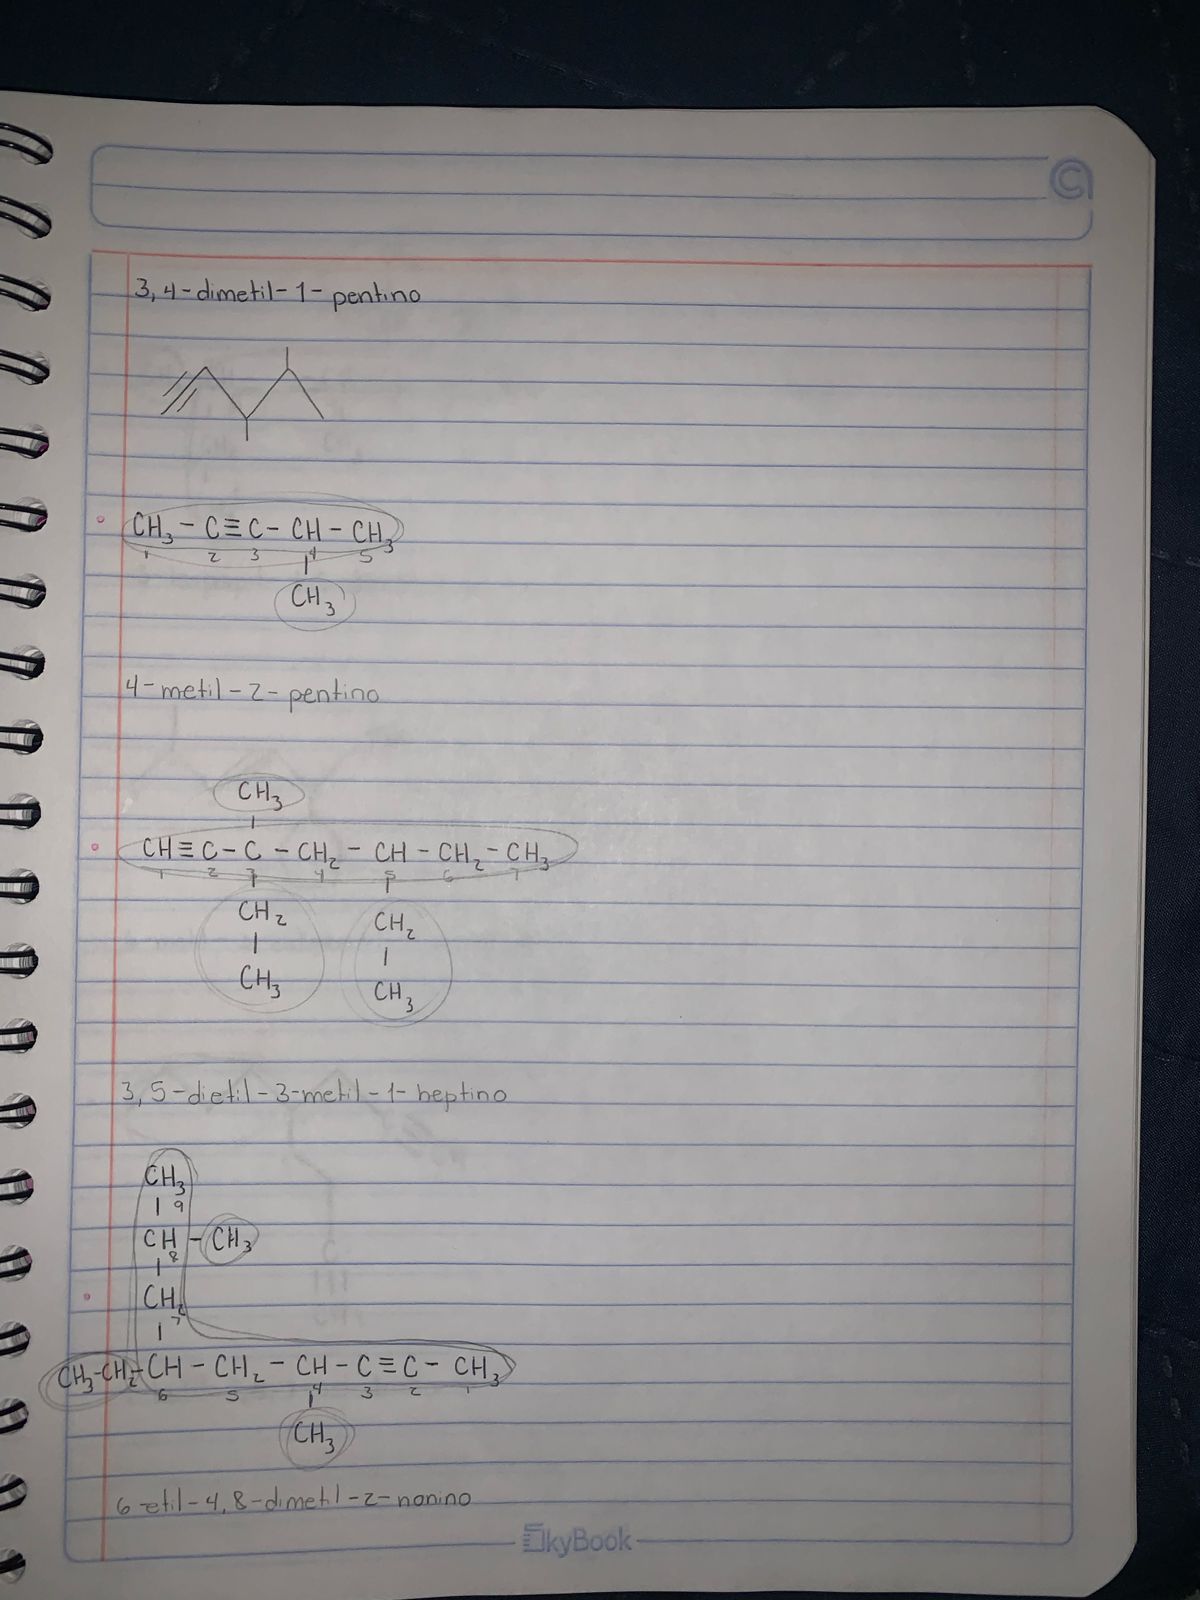 3,4-dimetil-1-pentino
CH3 - C ≡ C - CH - CH3
1 2 3 4 5
CH3
4-metil-2-pentino
CH3
CH ≡ C - C - CH2 - CH - CH2 - CH3
1 2 3 4 5 6 7
CH2 CH2
CH3 CH3
3,5-dietil-3-metil-1-heptino
CH3
9
CH - CH3
8
CH2
7
CH3-CH2-CH - CH2 - CH - C ≡ C - CH3
6 5 4 3 2 1
CH3
6-etil-4,8-dimetil-2-nonino
SkyBook